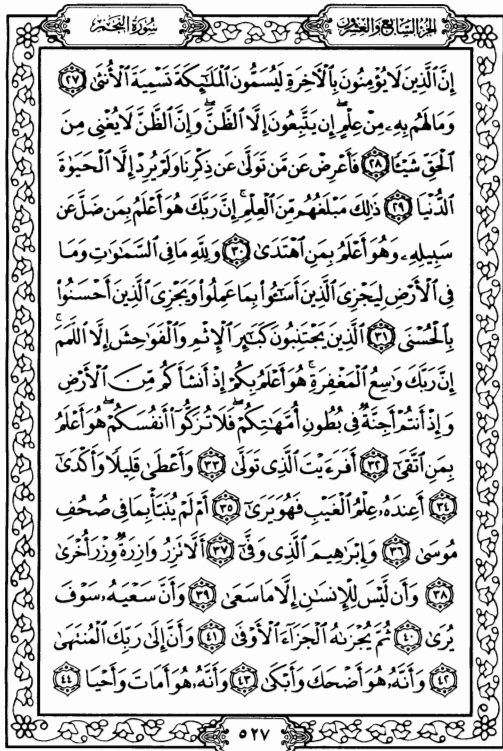 سُورَةُ النَّجْمِ
الجُزْءُ السَّابِعُ وَالعِشْرُونَ
إِنَّ ٱلَّذِينَ لَا يُؤْمِنُونَ بِٱلْـَٔاخِرَةِ لَيُسَمُّونَ ٱلْمَلَـٰٓئِكَةَ تَسْمِيَةَ ٱلْأُنثَىٰ ٢٧
وَمَا لَهُم بِهِۦ مِنْ عِلْمٍ ۖ إِن يَتَّبِعُونَ إِلَّا ٱلظَّنَّ ۖ وَإِنَّ ٱلظَّنَّ لَا يُغْنِى مِنَ
ٱلْحَقِّ شَيْـًٔا ٢٨ فَأَعْرِضْ عَن مَّن تَوَلَّىٰ عَن ذِكْرِنَا وَلَمْ يُرِدْ إِلَّا ٱلْحَيَوٰةَ
ٱلدُّنْيَا ٢٩ ذَٰلِكَ مَبْلَغُهُم مِّنَ ٱلْعِلْمِ ۚ إِنَّ رَبَّكَ هُوَ أَعْلَمُ بِمَن ضَلَّ عَن
سَبِيلِهِۦ وَهُوَ أَعْلَمُ بِمَنِ ٱهْتَدَىٰ ٣٠ وَلِلَّهِ مَا فِى ٱلسَّمَـٰوَٰتِ وَمَا
فِى ٱلْأَرْضِ لِيَجْزِىَ ٱلَّذِينَ أَسَـٰٓـُٔوا۟ بِمَا عَمِلُوا۟ وَيَجْزِىَ ٱلَّذِينَ أَحْسَنُوا۟
بِٱلْحُسْنَى ٣١ ٱلَّذِينَ يَجْتَنِبُونَ كَبَـٰٓئِرَ ٱلْإِثْمِ وَٱلْفَوَٰحِشَ إِلَّا ٱللَّمَمَ ۚ
إِنَّ رَبَّكَ وَٰسِعُ ٱلْمَغْفِرَةِ ۚ هُوَ أَعْلَمُ بِكُمْ إِذْ أَنشَأَكُم مِّنَ ٱلْأَرْضِ
وَإِذْ أَنتُمْ أَجِنَّةٌ فِى بُطُونِ أُمَّهَـٰتِكُمْ ۖ فَلَا تُزَكُّوٓا۟ أَنفُسَكُمْ ۖ هُوَ أَعْلَمُ
بِمَنِ ٱتَّقَىٰٓ ٣٢ أَفَرَءَيْتَ ٱلَّذِى تَوَلَّىٰ ٣٣ وَأَعْطَىٰ قَلِيلًا وَأَكْدَىٰٓ
٣٤ أَعِندَهُۥ عِلْمُ ٱلْغَيْبِ فَهُوَ يَرَىٰٓ ٣٥ أَمْ لَمْ يُنَبَّأْ بِمَا فِى صُحُفِ
مُوسَىٰ ٣٦ وَإِبْرَٰهِيمَ ٱلَّذِى وَفَّىٰٓ ٣٧ أَلَّا تَزِرُ وَازِرَةٌ وِزْرَ أُخْرَىٰ
٣٨ وَأَن لَّيْسَ لِلْإِنسَـٰنِ إِلَّا مَا سَعَىٰ ٣٩ وَأَنَّ سَعْيَهُۥ سَوْفَ
يُرَىٰ ٤٠ ثُمَّ يُجْزَىٰهُ ٱلْجَزَآءَ ٱلْأَوْفَىٰ ٤١ وَأَنَّ إِلَىٰ رَبِّكَ ٱلْمُنتَهَىٰ
٤٢ وَأَنَّهُۥ هُوَ أَضْحَكَ وَأَبْكَىٰ ٤٣ وَأَنَّهُۥ هُوَ أَمَاتَ وَأَحْيَا ٤٤
٥٢٧